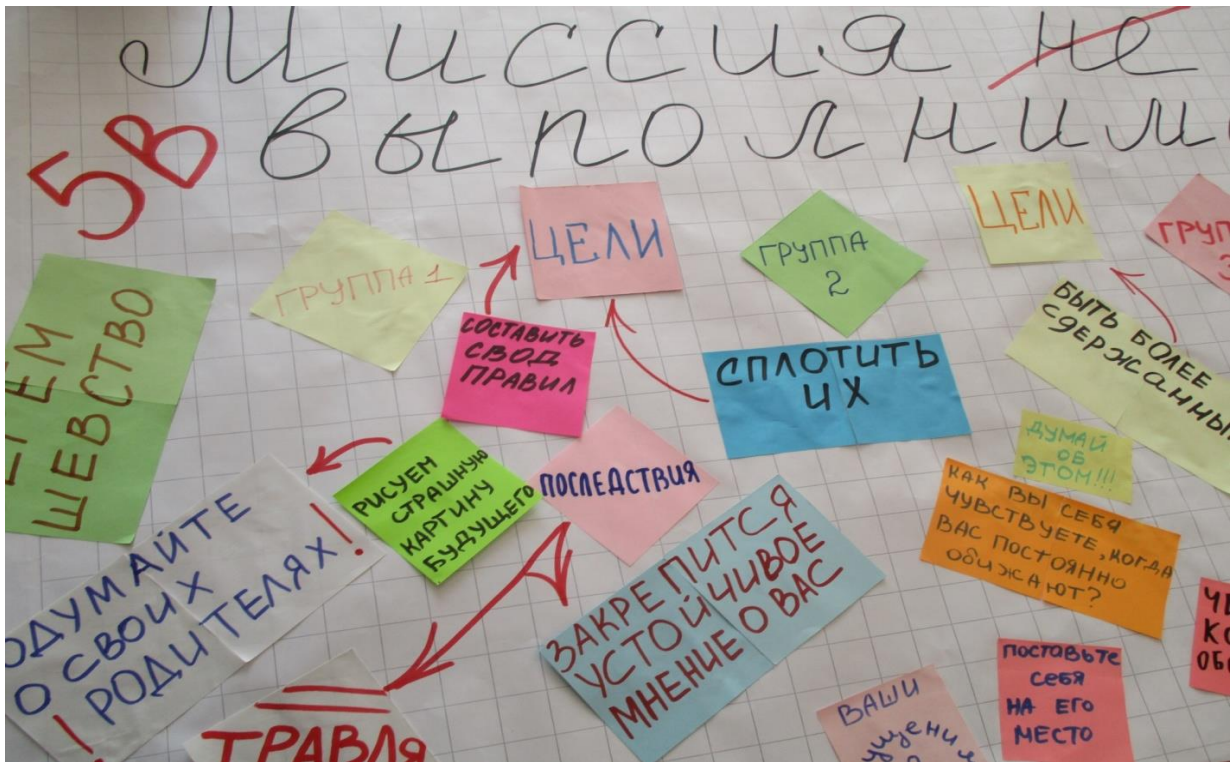 Миссия не
выполним
5В
ЦЕЛИ
ЦЕЛИ
ГРУППА 1
ГРУППА
2
ШЕВСТВО
СОСТАВИТЬ
СВОД
ПРАВИЛ
СПЛОТИТЬ
ИХ
БЫТЬ БОЛЕЕ
СДЕРЖАННЫ
ДУМАЙ
ОБ
ЭТОМ!!!
РИСУЕМ
СТРАШНУЮ
КАРТИНУ
БУДУЩЕГО
ПОСЛЕДСТВИЯ
КАК ВЫ СЕБЯ
ЧУВСТВУЕТЕ, КОГДА
ВАС ПОСТОЯННО
ОБИЖАЮТ?
ОДУМАЙТЕ
О СВОИХ
! РОДИТЕЛЯХ!
ЗАКРЕПИТСЯ
УСТОЙЧИВОЕ
МНЕНИЕ О ВАС
ПОСТАВЬТЕ
СЕБЯ
НА ЕГО
МЕСТО
ВАШИ
ТРАВЛЯ